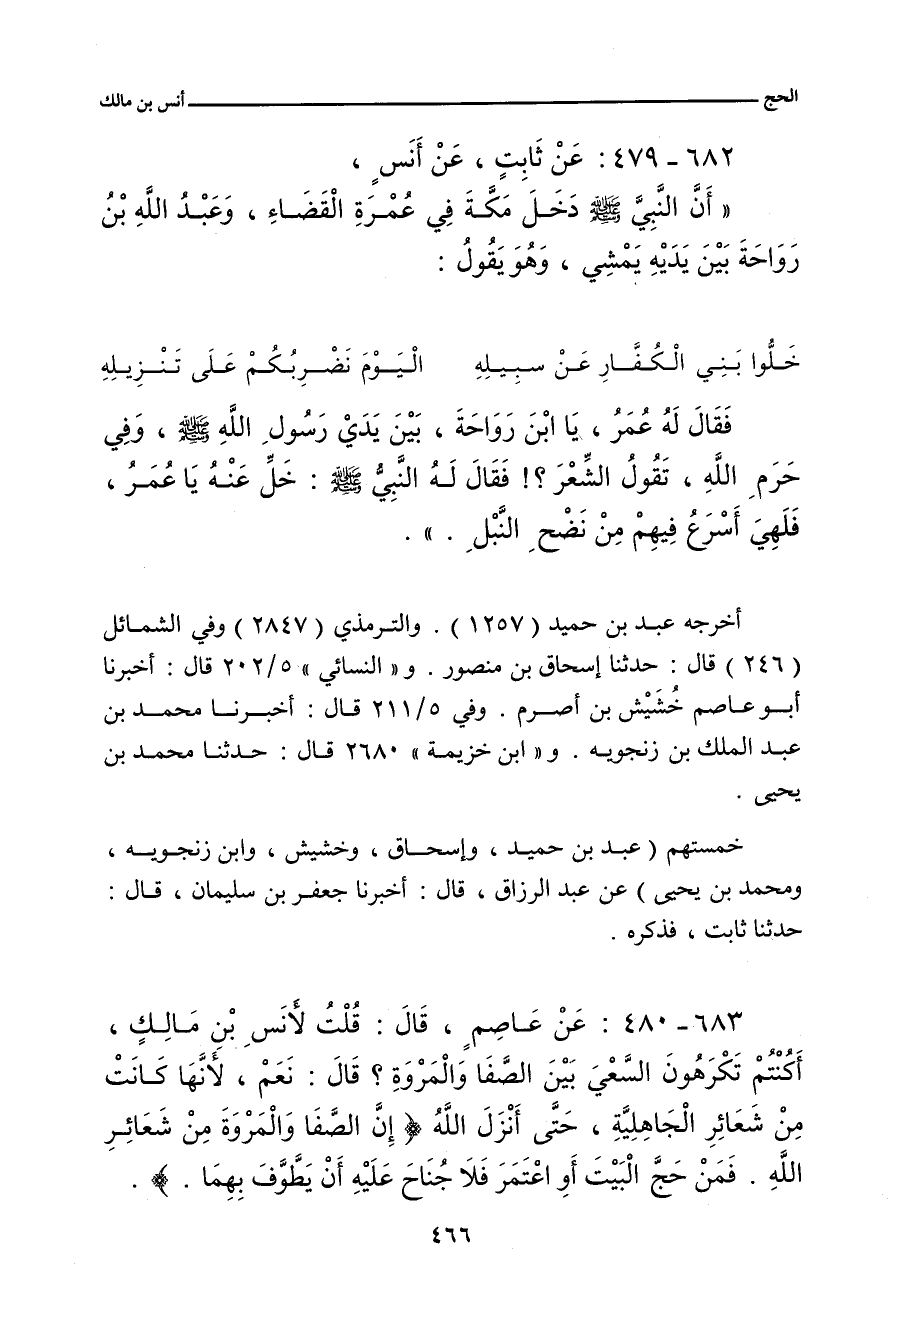 الحج أنس بن مالك
٦٨٢ - ٤٧٩ : عَنْ ثَابِتٍ ، عَنْ أَنَسٍ ،
« أَنَّ النَّبِيَّ ﷺ دَخَلَ مَكَّةَ فِي عُمْرَةِ الْقَضَاءِ ، وَعَبْدُ اللَّهِ بْنُ
رَوَاحَةَ بَيْنَ يَدَيْهِ يَمْشِي ، وَهُوَ يَقُولُ :
خَلُّوا بَنِي الْكُفَّارِ عَنْ سَبِيلِهِ الْيَوْمَ نَضْرِبُكُمْ عَلَى تَنْزِيلِهِ
فَقَالَ لَهُ عُمَرُ ، يَا ابْنَ رَوَاحَةَ ، بَيْنَ يَدَيْ رَسُولِ اللَّهِ ﷺ ، وَفِي
حَرَمِ اللَّهِ ، تَقُولُ الشِّعْرَ ؟! فَقَالَ لَهُ النَّبِيُّ ﷺ : خَلِّ عَنْهُ يَا عُمَرُ ،
فَلَهِيَ أَسْرَعُ فِيهِمْ مِنْ نَضْحِ النَّبْلِ . » .
أخرجه عبد بن حميد ( ١٢٥٧ ) . والترمذي ( ٢٨٤٧ ) وفي الشمائل
( ٢٤٦ ) قال : حدثنا إسحاق بن منصور . و« النسائي » ٢٠٢/٥ قال : أخبرنا
أبو عاصم خُشَيْش بن أصرم . وفي ٢١١/٥ قال : أخبرنا محمد بن
عبد الملك بن زنجويه . و« ابن خزيمة » ٢٦٨٠ قال : حدثنا محمد بن
يحيى .
خمستهم ( عبد بن حميد ، وإسحاق ، وخشيش ، وابن زنجويه ،
ومحمد بن يحيى ) عن عبد الرزاق ، قال : أخبرنا جعفر بن سليمان ، قال :
حدثنا ثابت ، فذكره .
٦٨٣ - ٤٨٠ : عَنْ عَاصِمٍ ، قَالَ : قُلْتُ لأَنَسِ بْنِ مَالِكٍ ،
أَكُنْتُمْ تَكْرَهُونَ السَّعْيَ بَيْنَ الصَّفَا وَالْمَرْوَةِ ؟ قَالَ : نَعَمْ ، لأَنَّهَا كَانَتْ
مِنْ شَعَائِرِ الْجَاهِلِيَّةِ ، حَتَّى أَنْزَلَ اللَّهُ ﴿ إِنَّ الصَّفَا وَالْمَرْوَةَ مِنْ شَعَائِرِ
اللَّهِ . فَمَنْ حَجَّ الْبَيْتَ أَوِ اعْتَمَرَ فَلاَ جُنَاحَ عَلَيْهِ أَنْ يَطَّوَّفَ بِهِمَا . ﴾ .
٤٦٦